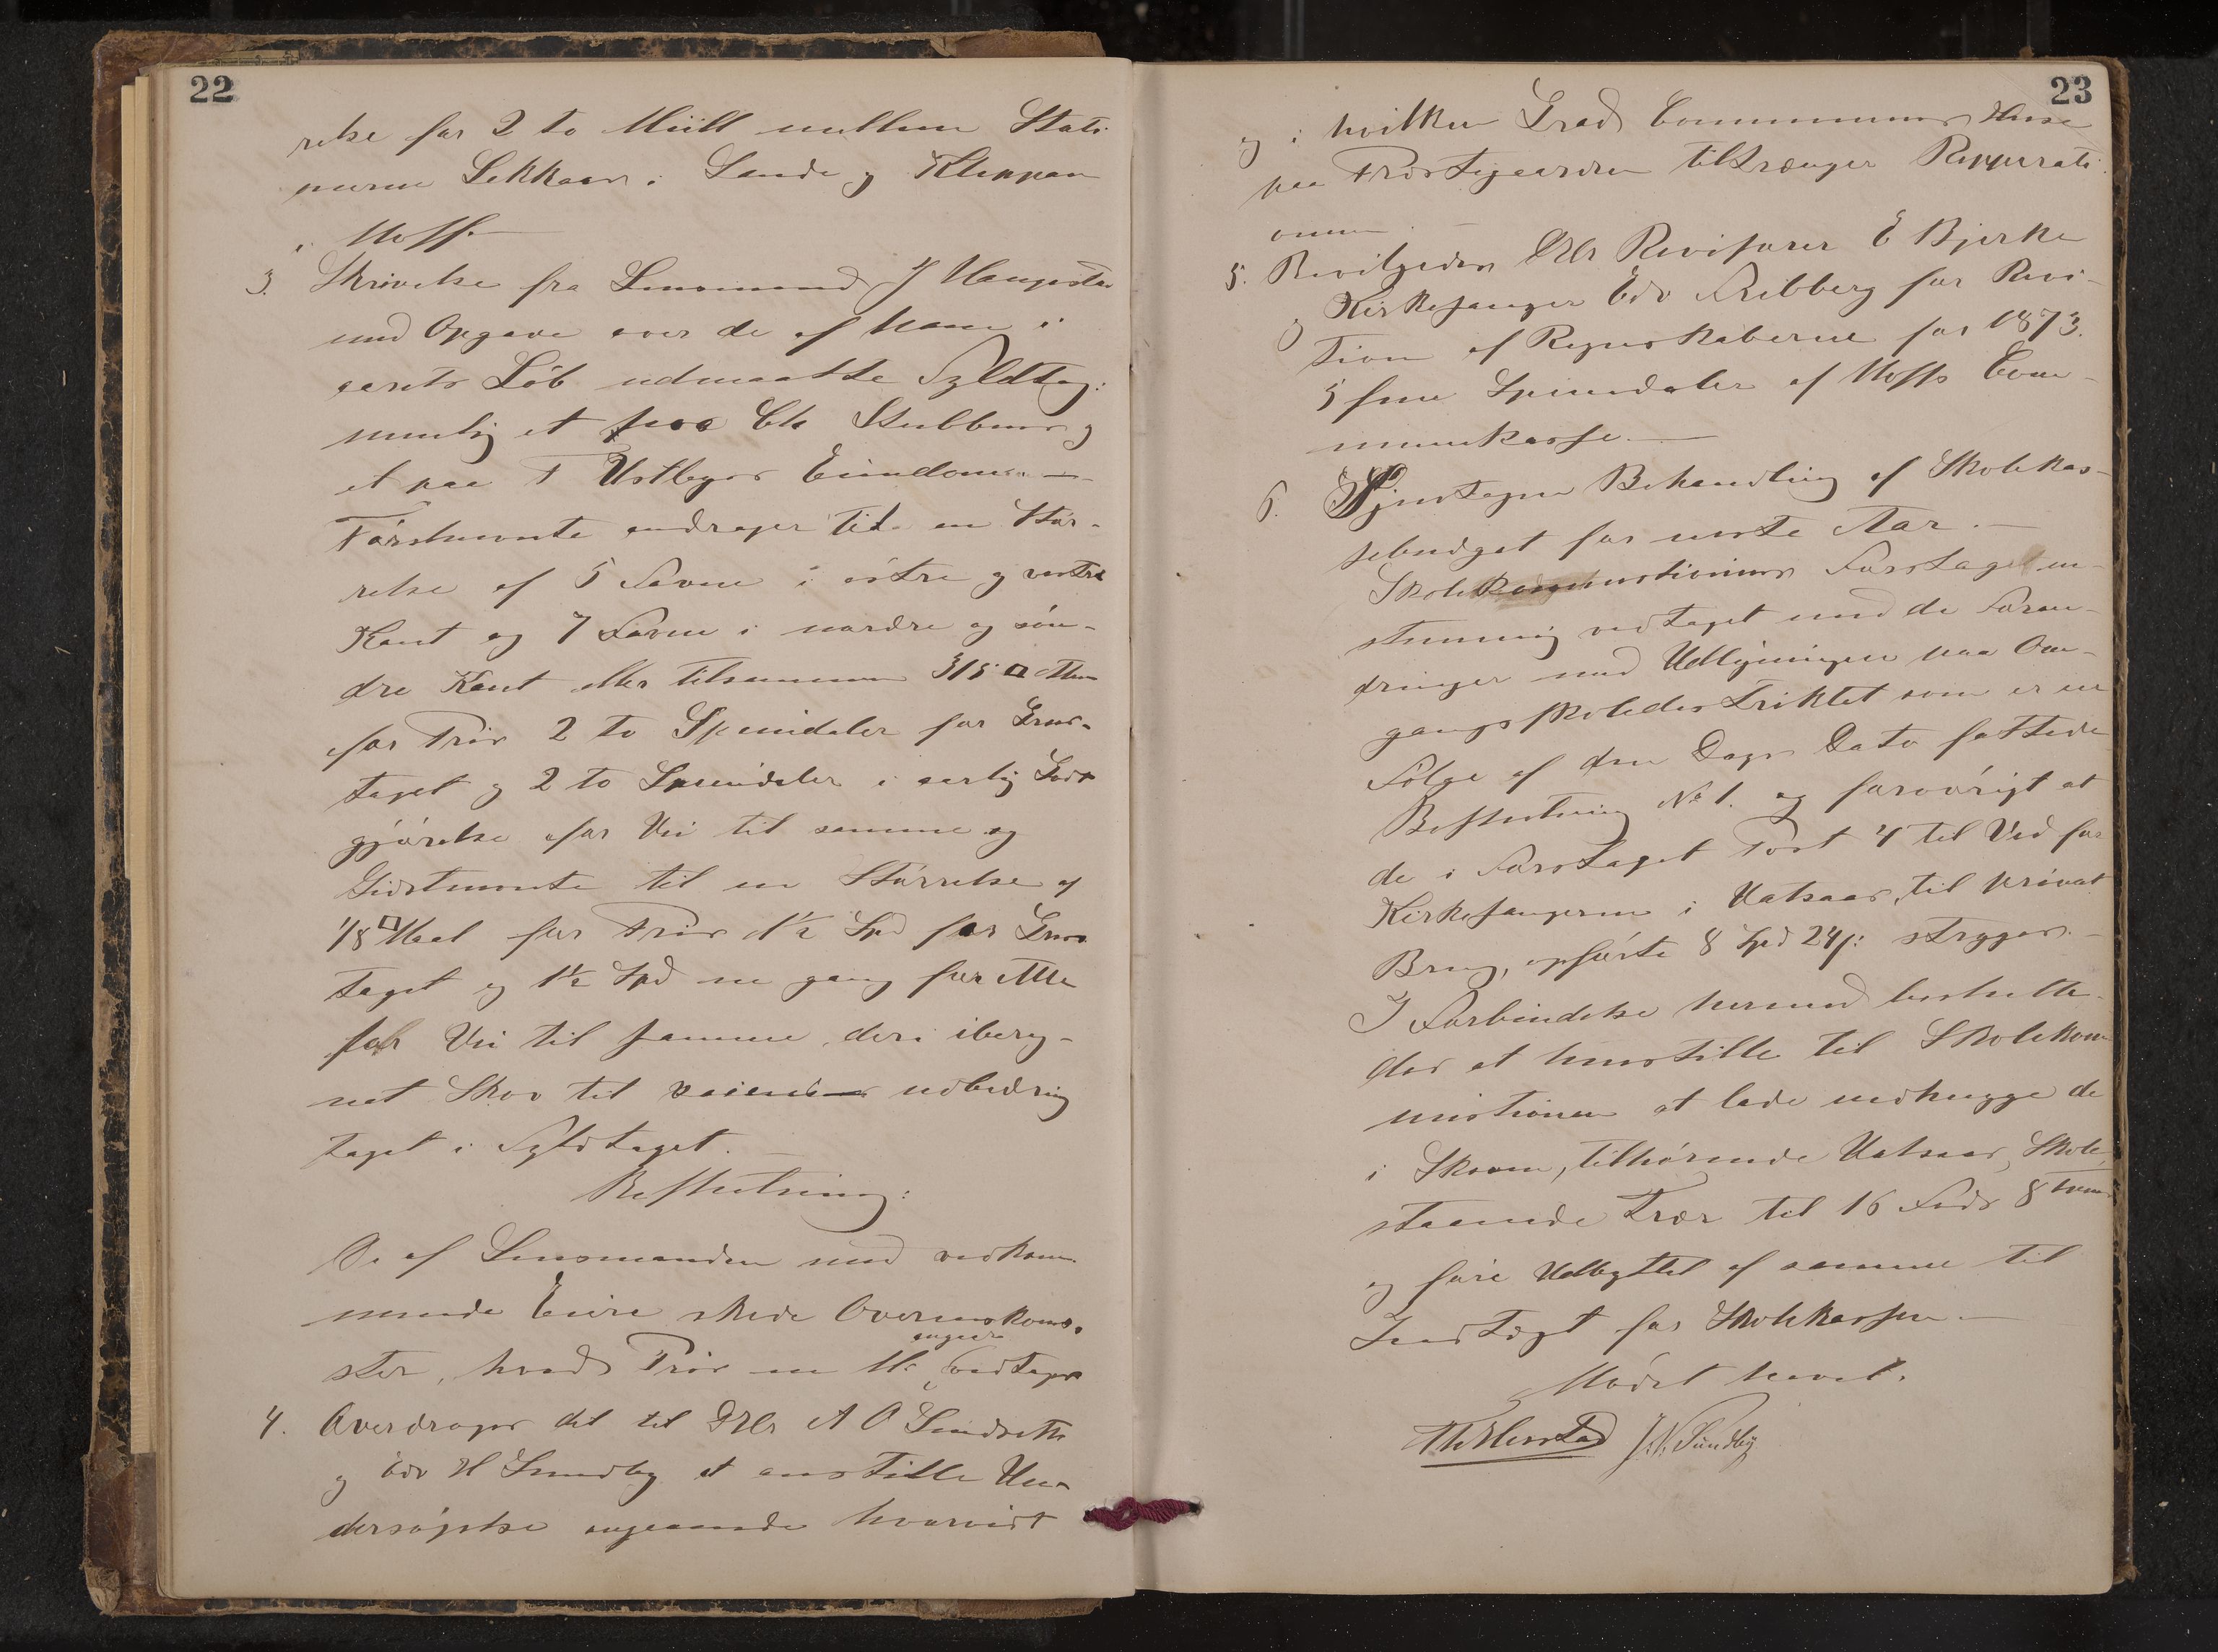 22
relse for 2 to Miil mellem Stati
nerne Sekkaas i Lande og Kleppen
i Hoff.
3. Skrivelse fra Lensmand J Haugsta
med Opgave over de af ham i
aarets Løb udmaatte Fyldtag:
nemlig et paa Chr Stubbens og
et paa T Ustbyes Eiendom
Førstnevnte andrager til en Stør-
relse af 5 Favne i østre og vestre
Kant og 7 Favne i nordre og søn-
dre Kant eller tilsammen 315 □ Alen
for Priis 2 to Speciedaler for Grus-
taget og 2 to Speciedaler i aarlig Godt
gjørelse for Vei til samme og
Sidstnevnte til en Størrelse af
1/8 □ Maal for Priis 1½ Spd for Grus
taget og 1½ Spd en gang for Alle
for Vei til samme, deri ibereg-
net Skov til veiens udbedring
taget i Fyldtaget.
Beslutning:
De af Lensmanden med vedkom
mende Eiere skede Overenskoms-
ster, hvad Priis en M: angaar vedtages
4. Overdroges det til DHr A O Sindsette
og Edv H Sundby at anstille Un-
dersøgelse angaaende hvorvidt
23
og i hvilken Grad Communens Huse
paa Præstegaarden tiltrænger Repperati
onen.
5. Bevilgedes DHr Revisorer E Bjerke
og Kirkesanger Edv Fribberg for Revi-
tion af Regnskaberne for 1873.
5 fem Speciedaler af Hoffs Com-
munekasse.
6. Gjentagen Behandling af Skolekas-
sebudget for neste Aar.
Skolekommistionens Forslag en-
stemmig vedtaget med de Foran-
dringer med Udligningen paa Om-
gangsskoledistriktet som er en
Følge af den Dags Dato fattede
Beslutning No 1. og forøvrigt at
de i Forslaget Post 4 til Ved for
Kirkesangeren i Vatsaas, til privat
Brug, opførte 8 Spd 24 s: stryges.
I Forbindelse hermed beslutte-
des at henstille til Skolekom
mistionen at lade nedhugge de
i Skoven, tilhørende Vatsaas Skole,
staaende Trær til 16 Fods 8 Tom
og føre Udbyttet af samme til
Indtægt for Skolekassen.
Mødet hævet.
J. N. Sundby